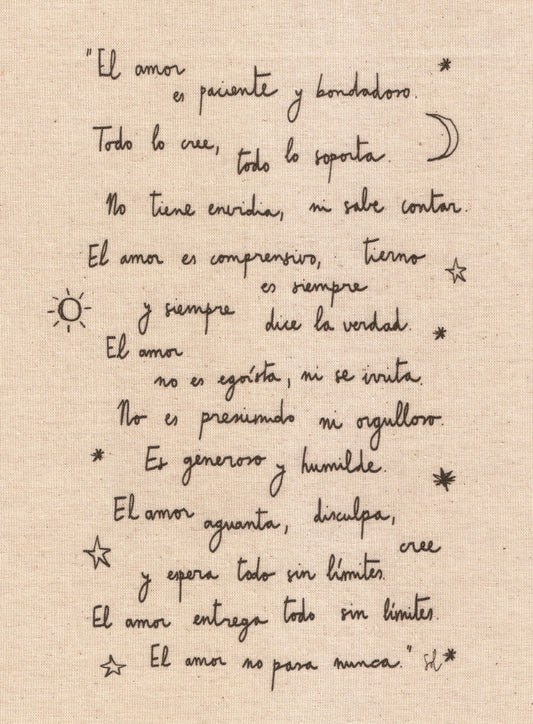 "El amor
es paciente y bondadoso.
Todo lo cree, todo lo soporta.
No tiene envidia, ni sabe contar.
El amor es comprensivo, tierno
es siempre
y siempre dice la verdad.
El amor
no es egoísta, ni se irrita.
No es presumido ni orgulloso.
Es generoso y humilde.
El amor aguanta, disculpa,
cree
y espera todo sin límites.
El amor entrega todo sin límites.
El amor no pasa nunca." sd